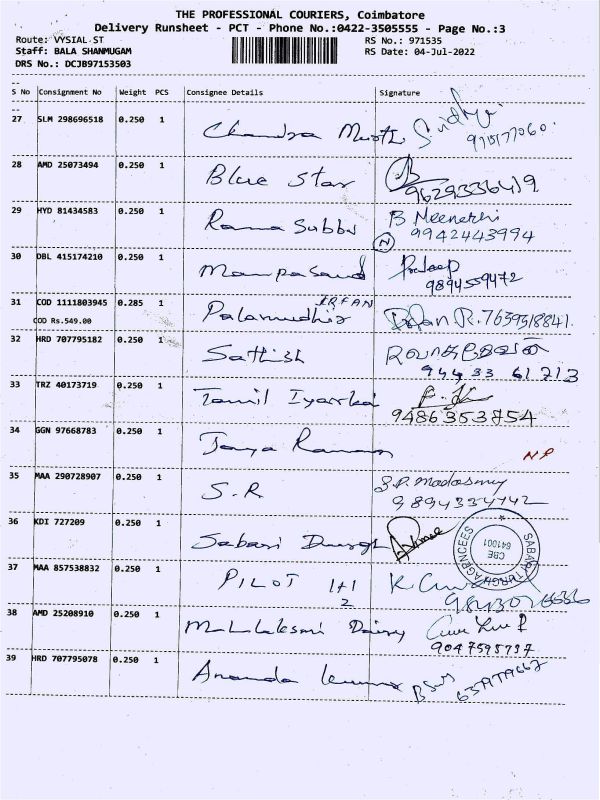 THE PROFESSIONAL COURIERS, Coimbatore
Delivery Runsheet - PCT - Phone No.:0422-3505555 - Page No.:3
Route: VYSIAL ST RS No.: 971535
Staff: BALA SHANMUGAM RS Date: 04-Jul-2022
DRS No.: DCJB97153503
S No Consignment No Weight PCS Consignee Details Signature
27 SLM 298696518 0.250 1 Chandra
28 AMD 25073494 0.250 1 Blue Star
9629336419
29 HYD 81434583 0.250 1 Rama Subbu B Meenakshi
N 9942443994
30 DBL 415174210 0.250 1 Pradeep
9894559472
31 COD 1111803945 0.285 1 IRFAN
COD Rs.549.00 Irfan R. 7639518841.
32 HRD 707795182 0.250 1 Sathish
94433 61713
33 TRZ 40173719 0.250 1 Tamil
9486353754
34 GGN 97668783 0.250 1 Raman NP
35 MAA 290728907 0.250 1 S.R S.P. Madasamy
9894334742
36 KDI 727209 0.250 1 Sabari
SABARI DURGA AGENCEES
CBE
641001
37 MAA 857538832 0.250 1 PILOT 1+1
2
38 AMD 25208910 0.250 1 Dairy
9047595737
39 HRD 707795078 0.250 1 Ananda